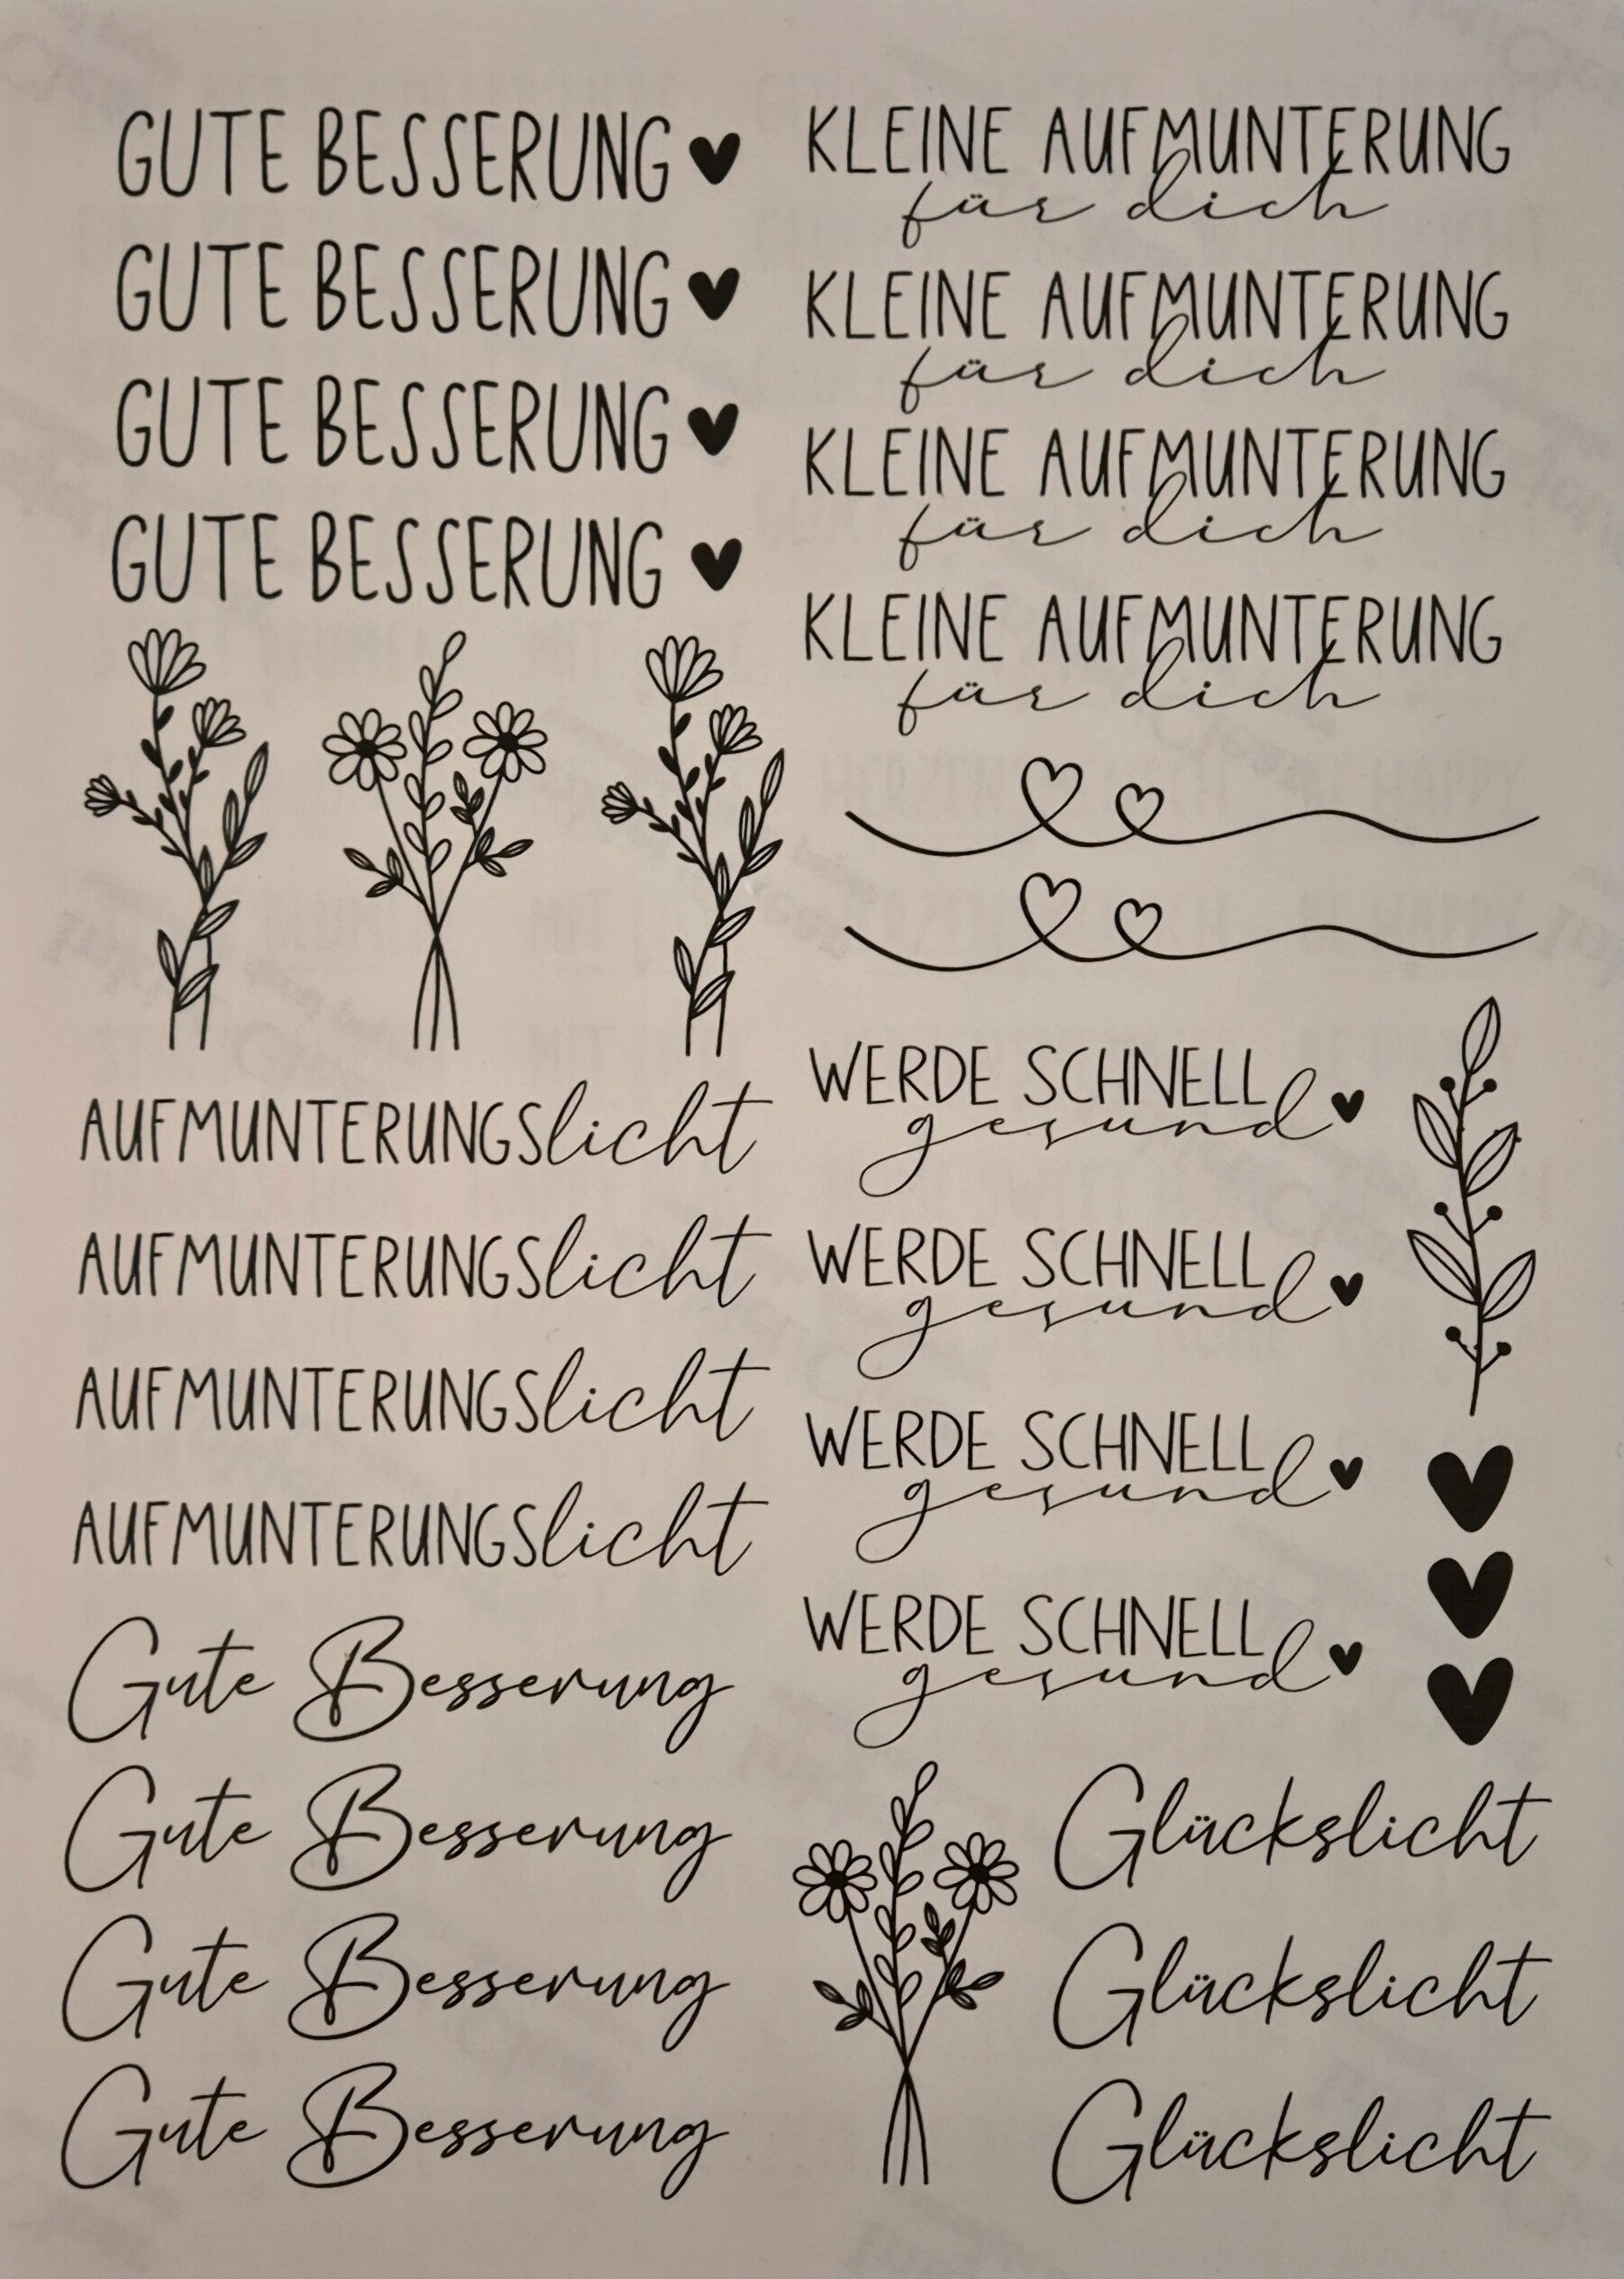 GUTE BESSERUNG
GUTE BESSERUNG
GUTE BESSERUNG
GUTE BESSERUNG
AUFMUNTERUNGSlicht
AUFMUNTERUNGSlicht
AUFMUNTERUNGSlicht
AUFMUNTERUNGSlicht
Gute Besserung
Gute Besserung
Gute Besserung
Gute Besserung
KLEINE AUFMUNTERUNG
für dich
KLEINE AUFMUNTERUNG
für dich
KLEINE AUFMUNTERUNG
für dich
KLEINE AUFMUNTERUNG
für dich
WERDE SCHNELL
gesund
WERDE SCHNELL
gesund
WERDE SCHNELL
gesund
WERDE SCHNELL
gesund
Glückslicht
Glückslicht
Glückslicht